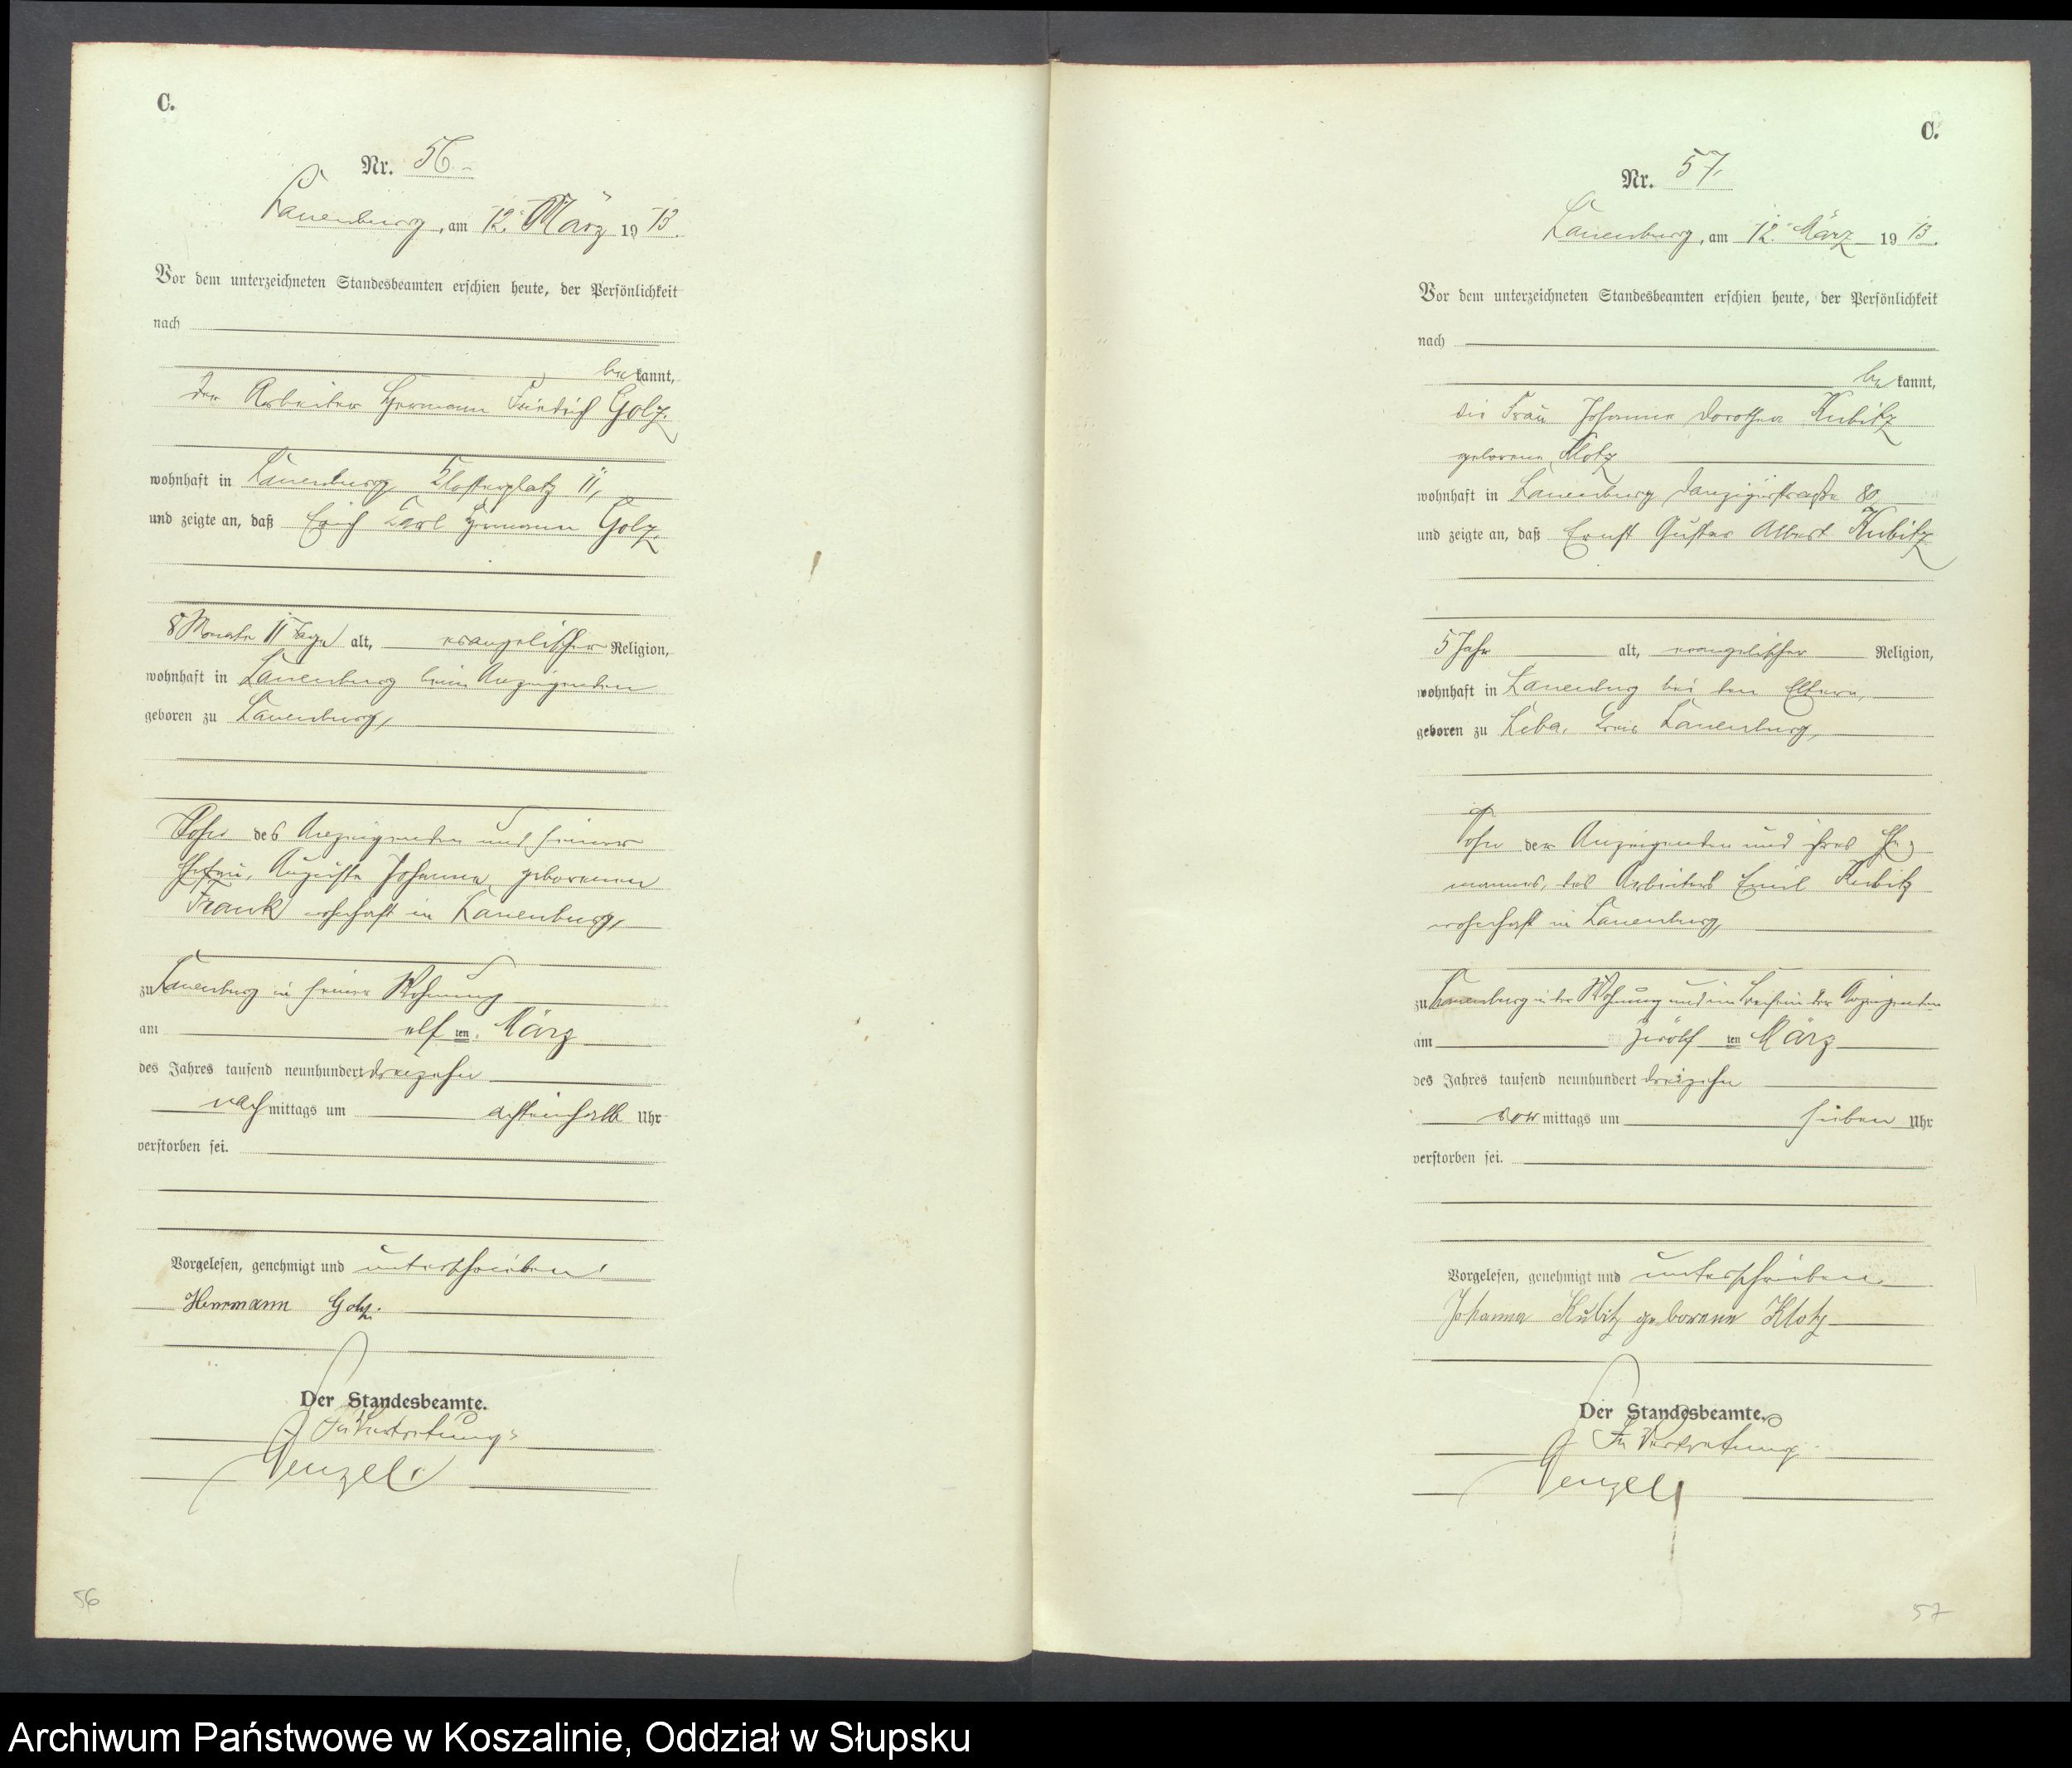 C.
Nr. 56.
Lauenburg, am 12. März 1913.
Vor dem unterzeichneten Standesbeamten erschien heute, der Persönlichkeit
nach
bekannt,
der Arbeiter Hermann Friedrich Golz
wohnhaft in Lauenburg Klosterplatz 11,
und zeigte an, daß Erich Carl Hermann Golz
8 Monate 11 Tage alt, evangelischer Religion,
wohnhaft in Lauenburg beim Anzeigenden
geboren zu Lauenburg,
Sohn des Anzeigenden und seiner
Ehefrau, Auguste Johanna geborenen
Frank wohnhaft in Lauenburg,
zu Lauenburg in seiner Wohnung
am elften März
des Jahres tausend neunhundert dreizehn
nachmittags um achteinhalb Uhr
verstorben sei.
Vorgelesen, genehmigt und unterschrieben
Herrmann Golz.
Der Standesbeamte.
In Vertretung
56
C.
Nr. 57.
Lauenburg, am 12. März 1913.
Vor dem unterzeichneten Standesbeamten erschien heute, der Persönlichkeit
nach
bekannt,
die Frau Johanna Dorothea Kubitz
geborene Klotz
wohnhaft in Lauenburg Danzigerstraße 80,
und zeigte an, daß Ernst Gustav Albert Kubitz
5 Jahr alt, evangelischer Religion,
wohnhaft in Lauenburg bei den Eltern,
geboren zu Leba, Kreis Lauenburg,
Sohn der Anzeigenden und ihres Ehe-
mannes, des Arbeiters Emil Kubitz
wohnhaft in Lauenburg,
zu Lauenburg in der Wohnung und im Beisein der Anzeigenden
am zwölften März
des Jahres tausend neunhundert dreizehn
vormittags um sieben Uhr
verstorben sei.
Vorgelesen, genehmigt und unterschrieben
Johanna Kubitz geborene Klotz
Der Standesbeamte.
In Vertretung
57
Archiwum Państwowe w Koszalinie, Oddział w Słupsku